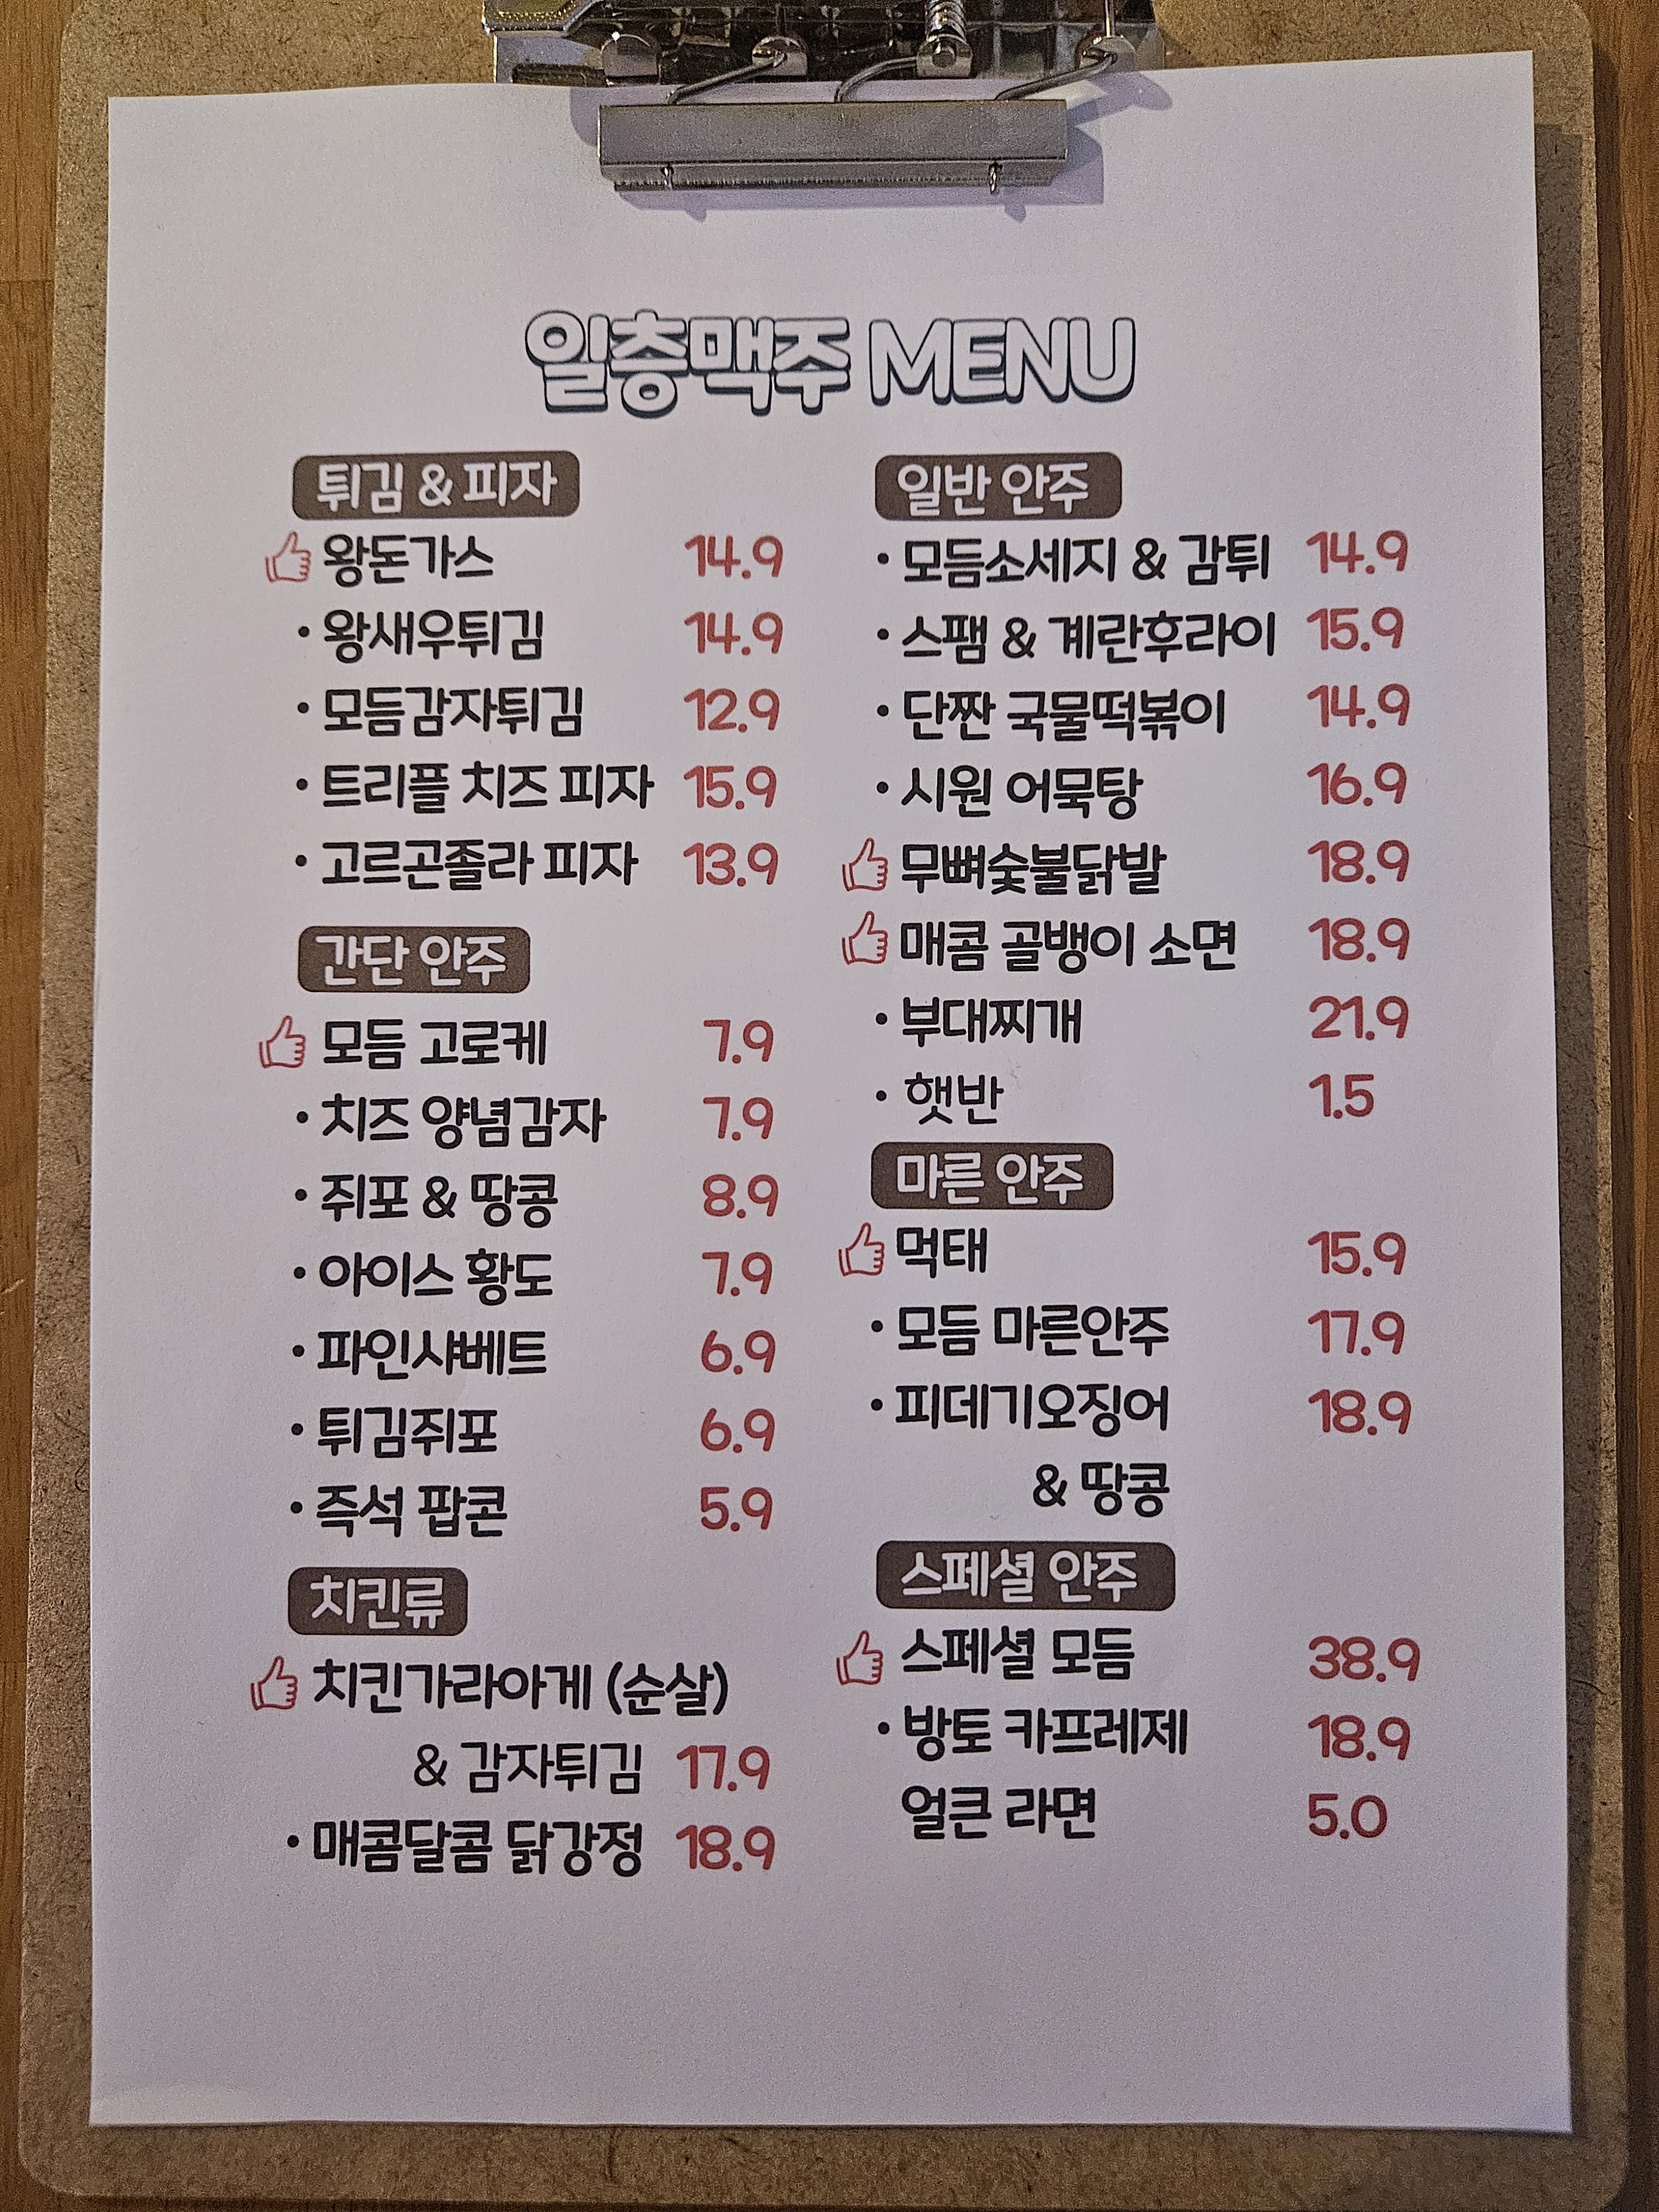 일층맥주 MENU
튀김 & 피자
왕돈가스 14.9
· 왕새우튀김 14.9
· 모듬감자튀김 12.9
· 트리플 치즈 피자 15.9
· 고르곤졸라 피자 13.9
간단 안주
모듬 고로케 7.9
· 치즈 양념감자 7.9
· 쥐포 & 땅콩 8.9
· 아이스 황도 7.9
· 파인샤베트 6.9
· 튀김쥐포 6.9
· 즉석 팝콘 5.9
치킨류
치킨가라아게 (순살)
& 감자튀김 17.9
· 매콤달콤 닭강정 18.9
일반 안주
· 모듬소세지 & 감튀 14.9
· 스팸 & 계란후라이 15.9
· 단짠 국물떡볶이 14.9
· 시원 어묵탕 16.9
무뼈숯불닭발 18.9
매콤 골뱅이 소면 18.9
· 부대찌개 21.9
· 햇반 1.5
마른 안주
먹태 15.9
· 모듬 마른안주 17.9
· 피데기오징어 18.9
& 땅콩
스페셜 안주
스페셜 모듬 38.9
· 방토 카프레제 18.9
얼큰 라면 5.0